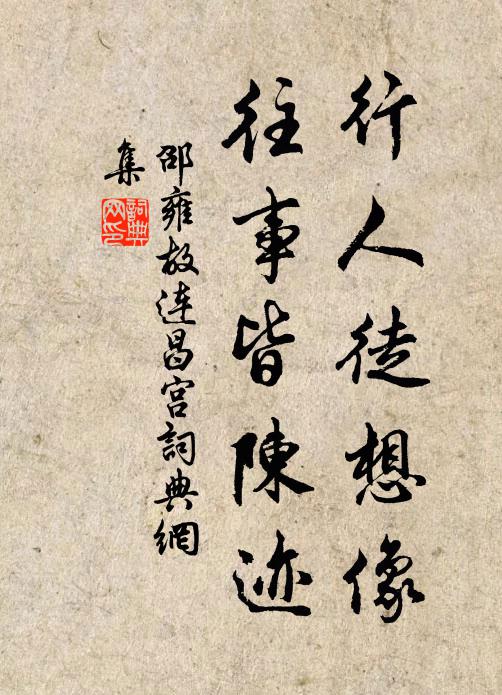 行人徒想像
往事皆陳迹
邵雍故连昌宫詞典網
集
詞典
网印